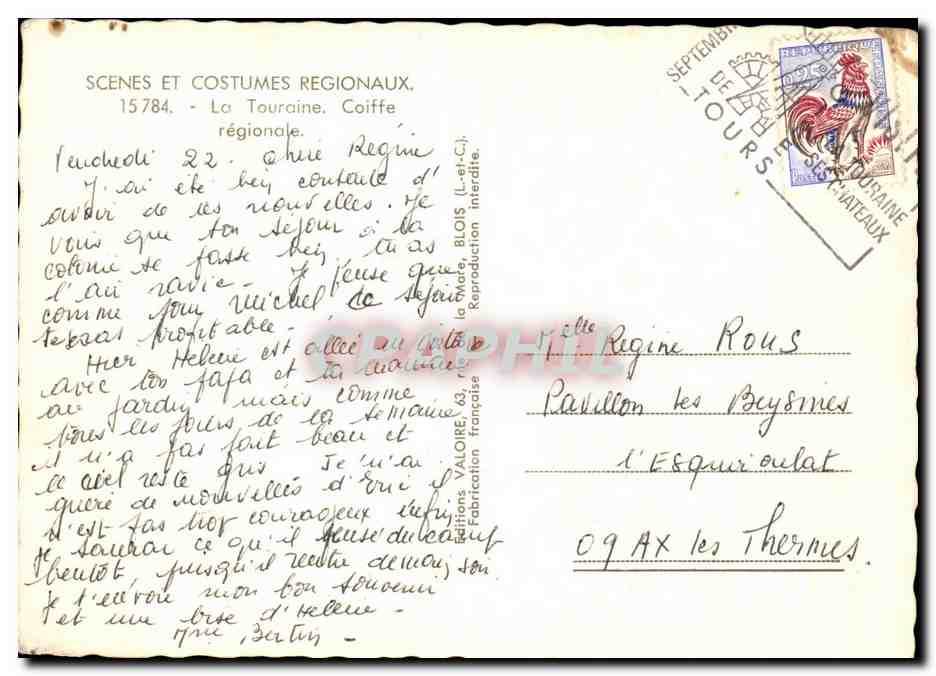 SCENES ET COSTUMES REGIONAUX.
15 784. - La Touraine. Coiffe
régionale.
Vendredi 22. Chère Régine
J'ai été bien contente d'
avoir de tes nouvelles. Je
vois que ton séjour à la
colonie se passe bien, tu as
l'air ravie - Je pense que
comme pour Michel ce séjour
te sera profitable -
Hier Hélène est allée en voiture
avec ton papa et ta maman
au jardin mais comme
tous les jours de la semaine
il n'a pas fait beau et
le ciel reste gris Je n'ai
guère de nouvelles d'Eric il
n'est pas trop courageux enfin
je saurai ce qu'il pense du camp
bientôt, puisqu'il rentre demain soir
Je t'envoie mon bon souvenir
et une bise d'Hélène -
Mme Bertin -
Editions VALOIRE, 63, la Mare, BLOIS (L.-et-C.).
Fabrication française Reproduction interdite.
GRAPHIL
SEPTEMBRE
DE
TOURS
TOURAINE
SES CHATEAUX
REPUBLIQUE FRANÇAISE
0,25
Melle Régine Rous
Pavillon les Beysines
l'Esquiroulat
09 AX les Thermes.